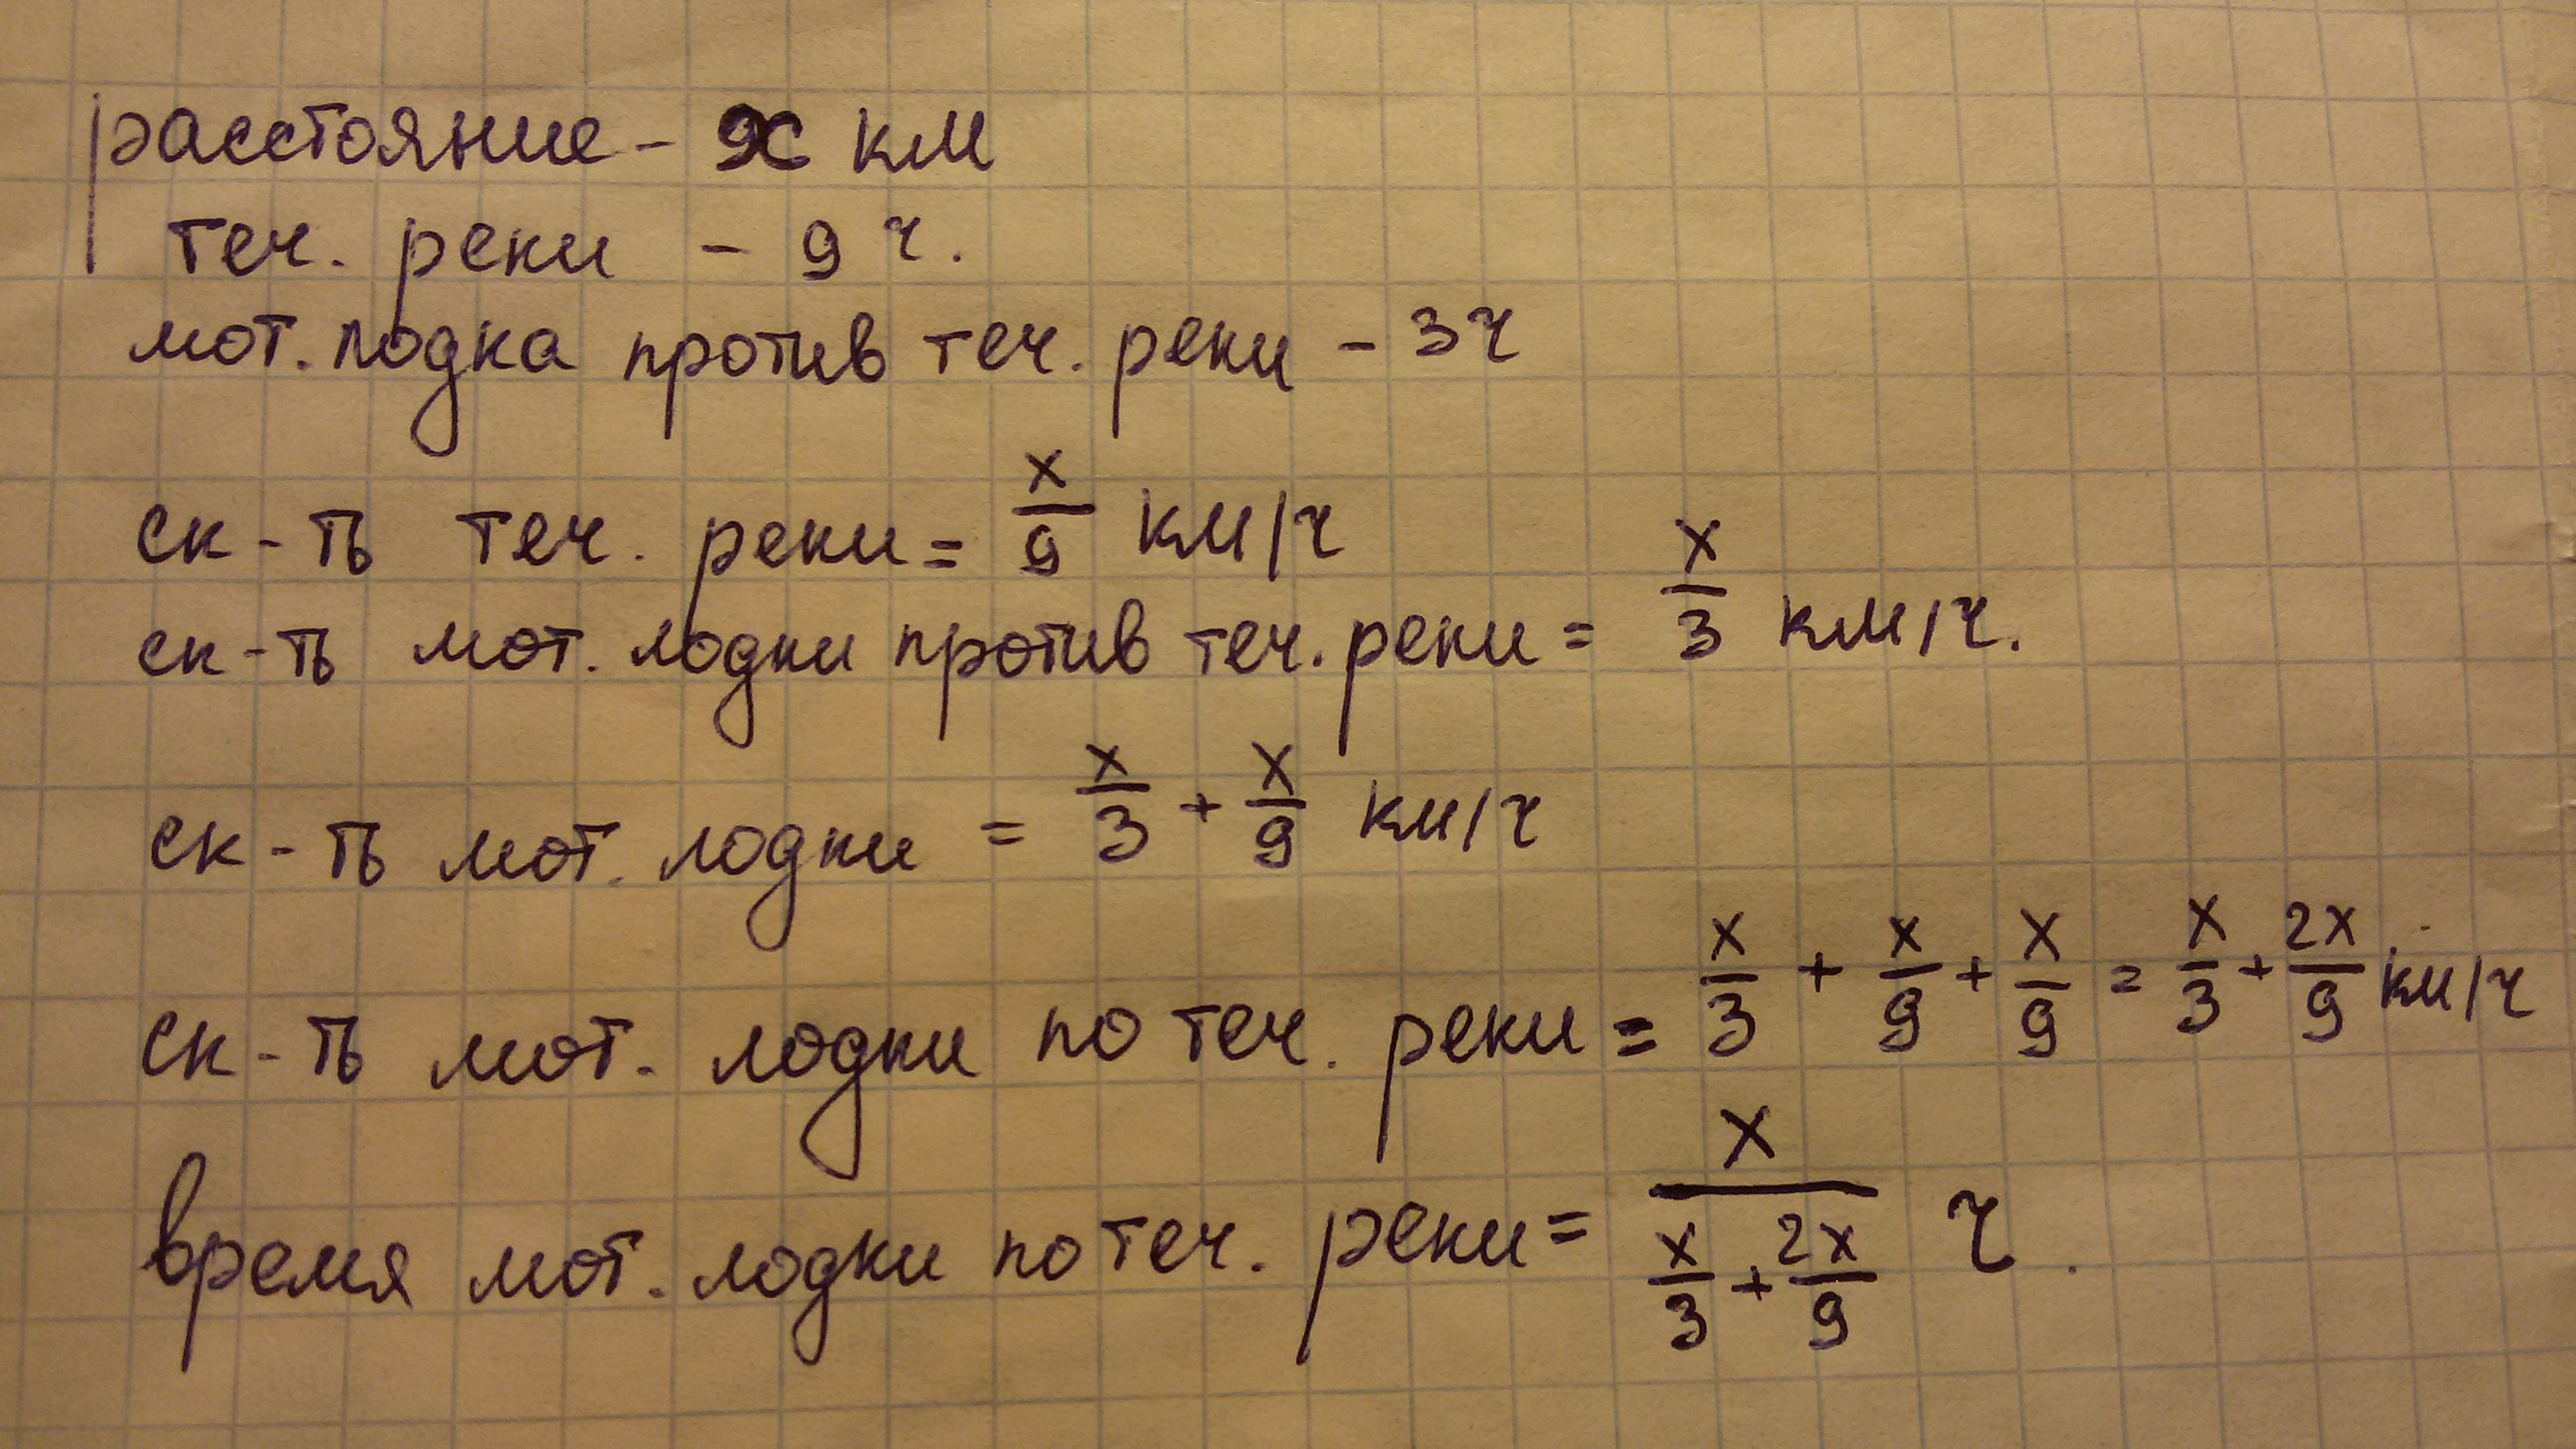 расстояние - x км
теч. реки - 9 ч.
мот. лодка против теч. реки - 3 ч
ск-ть теч. реки = x/9 км/ч
ск-ть мот. лодки против теч. реки = x/3 км/ч.
ск-ть мот. лодки = x/3 + x/9 км/ч
ск-ть мот. лодки по теч. реки = x/3 + x/9 + x/9 = x/3 + 2x/9 км/ч
время мот. лодки по теч. реки = x/(x/3 + 2x/9) ч.